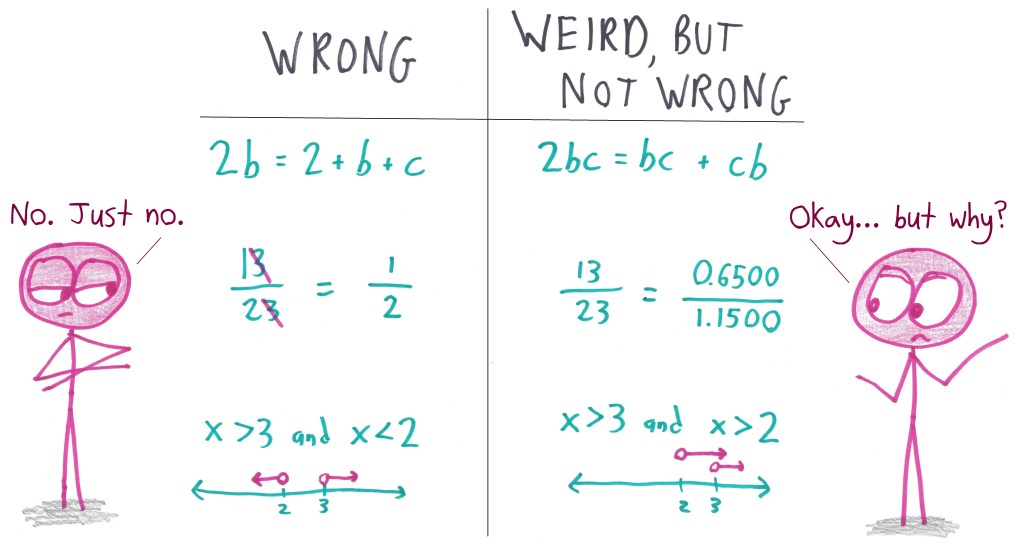 WRONG
WEIRD, BUT
NOT WRONG
2b = 2 + b + c
2bc = bc + cb
No. Just no.
Okay... but why?
13/23 = 1/2
13/23 = 0.6500/1.1500
x > 3 and x < 2
x > 3 and x > 2
2 3
2 3